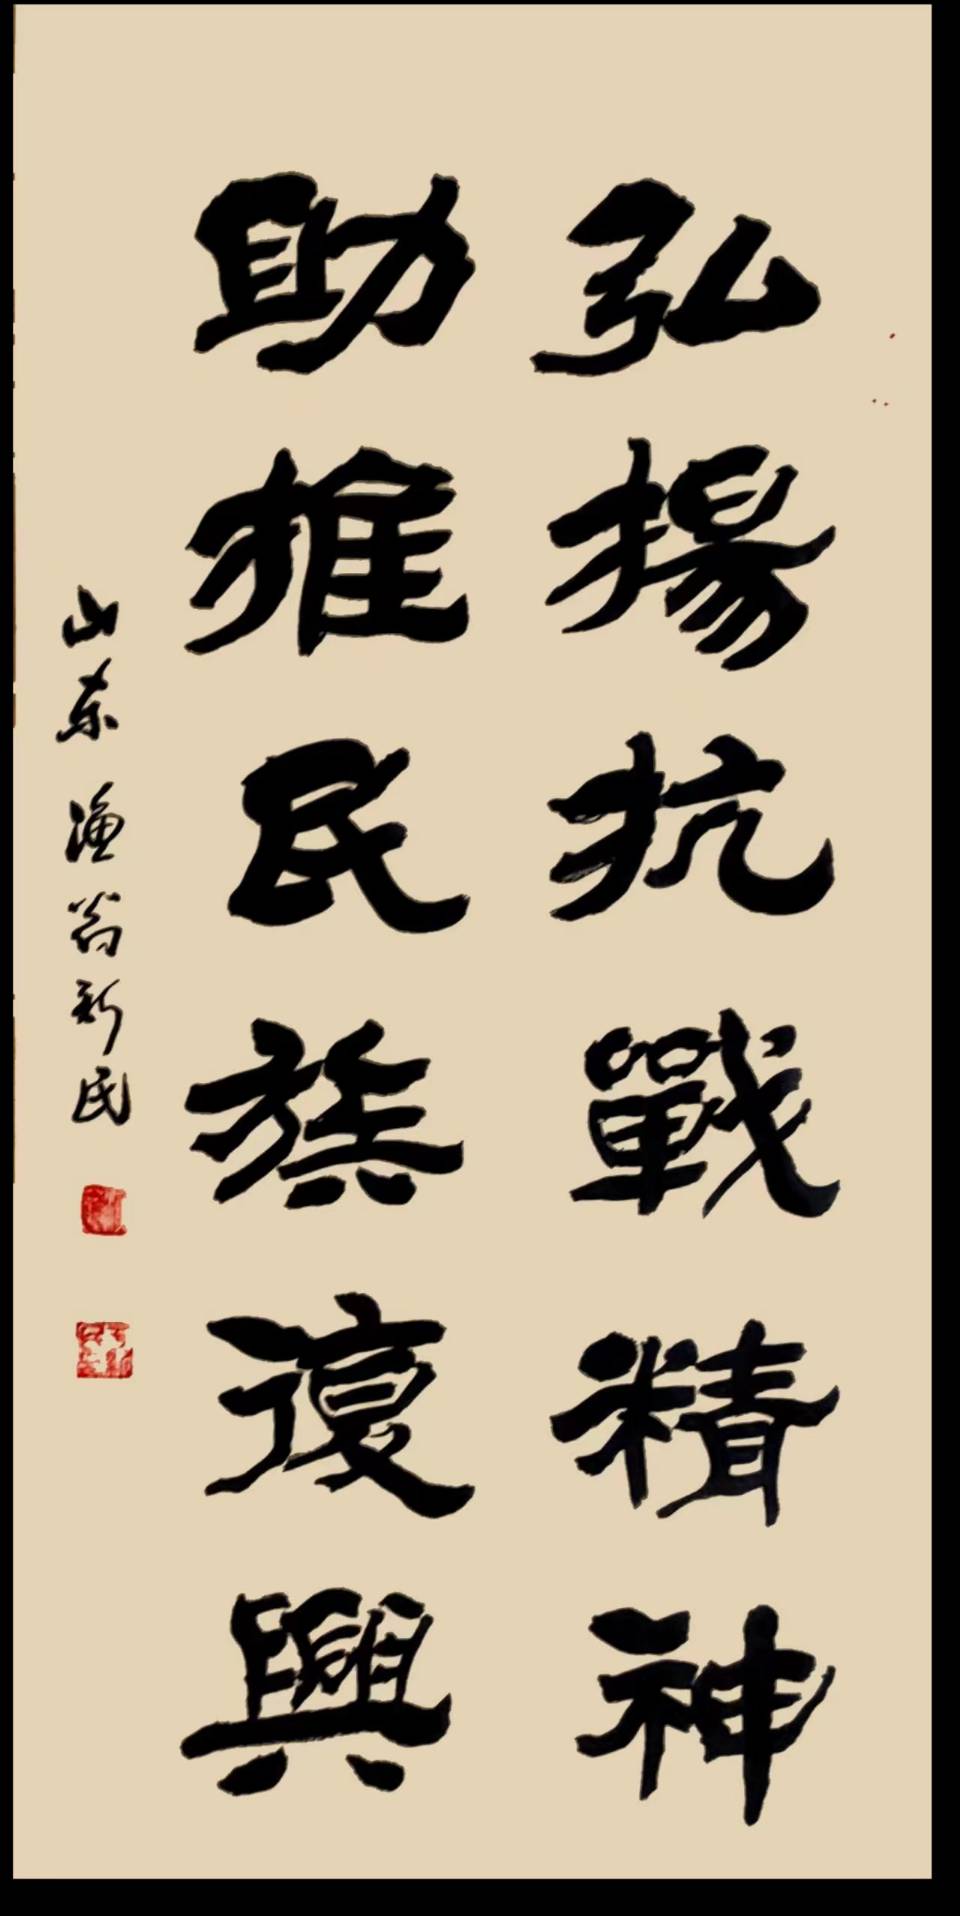 弘揚抗戰精神
助推民族復興
山东渔翁新民